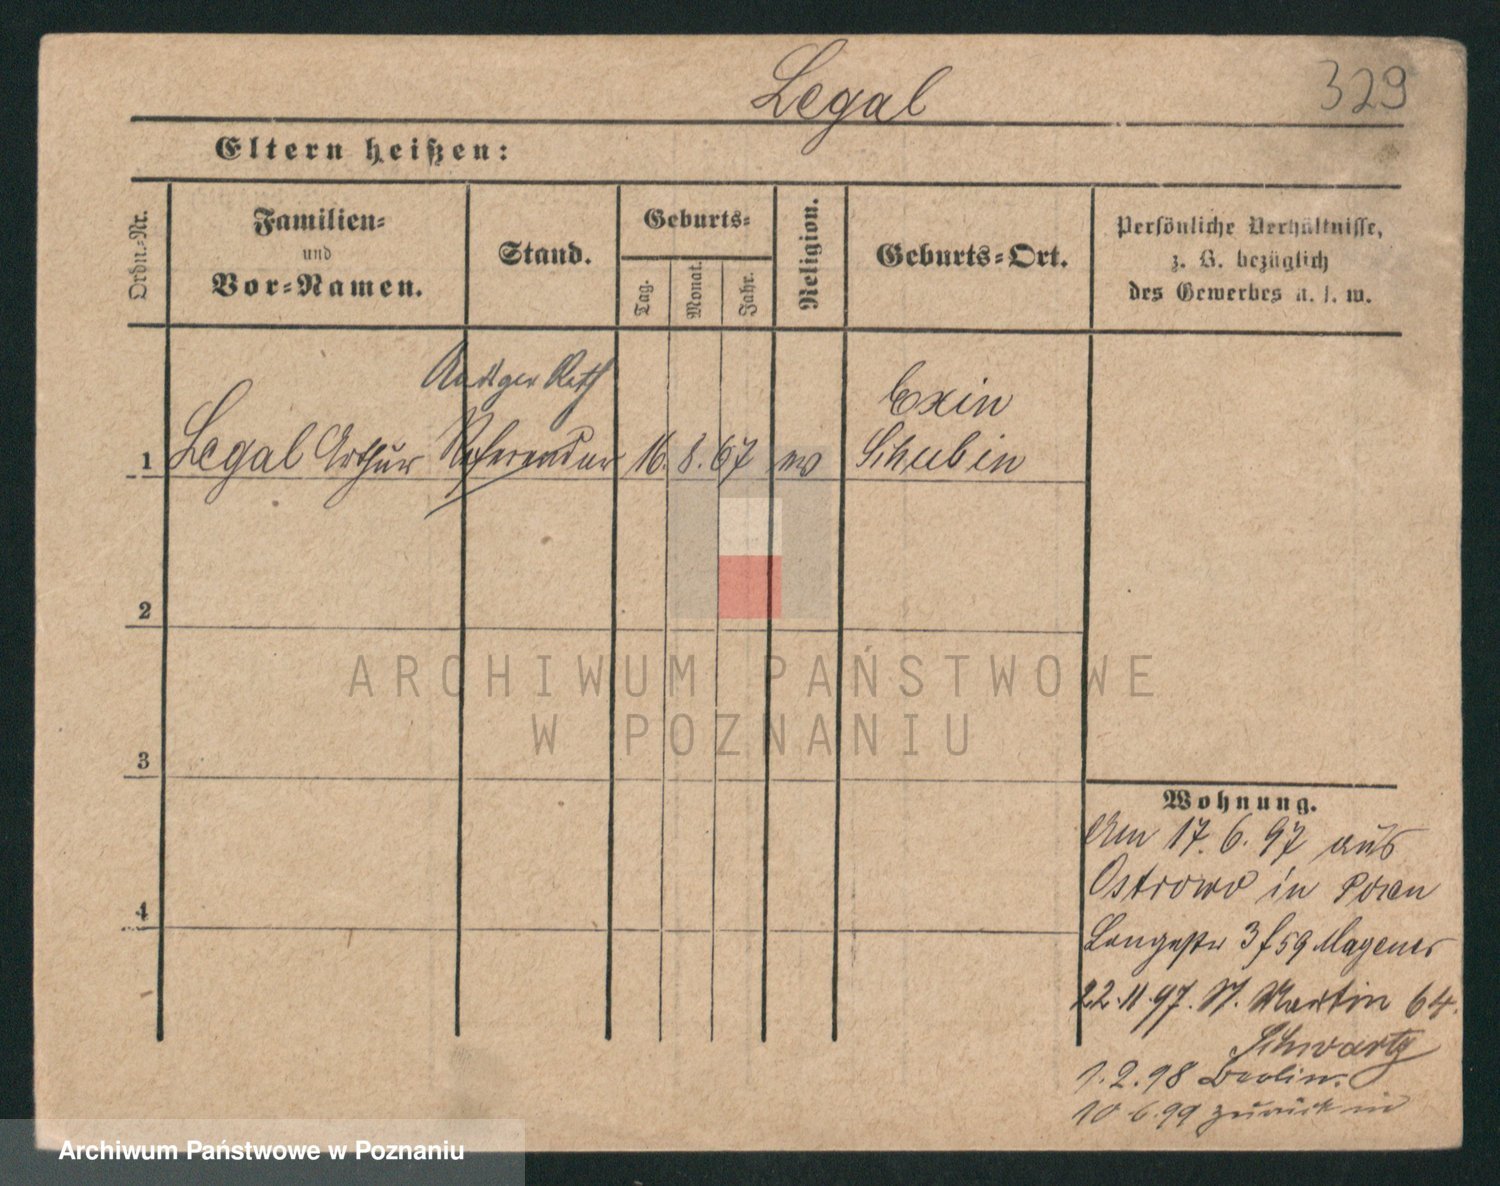 Legal
329
Eltern heißen:
Ordn.-Nr.
Familien-
und
Vor-Namen.
Stand.
Geburts-
Tag.
Monat.
Jahr.
Religion.
Geburts-Ort.
Persönliche Verhältnisse,
z. B. bezüglich
des Gewerbes u. s. w.
Exin
1 Legal Arthur Referendar 16. 8. 67 Schubin
2
3
4
Wohnung.
Am 17. 6. 97 aus
Ostrowo in Posen
Langestr 3 f 59
22.11.97. St. Martin 64.
Schwartz
1.2.98 Berlin.
10 6.99 zurück in
ARCHIWUM PAŃSTWOWE
W POZNANIU
Archiwum Państwowe w Poznaniu